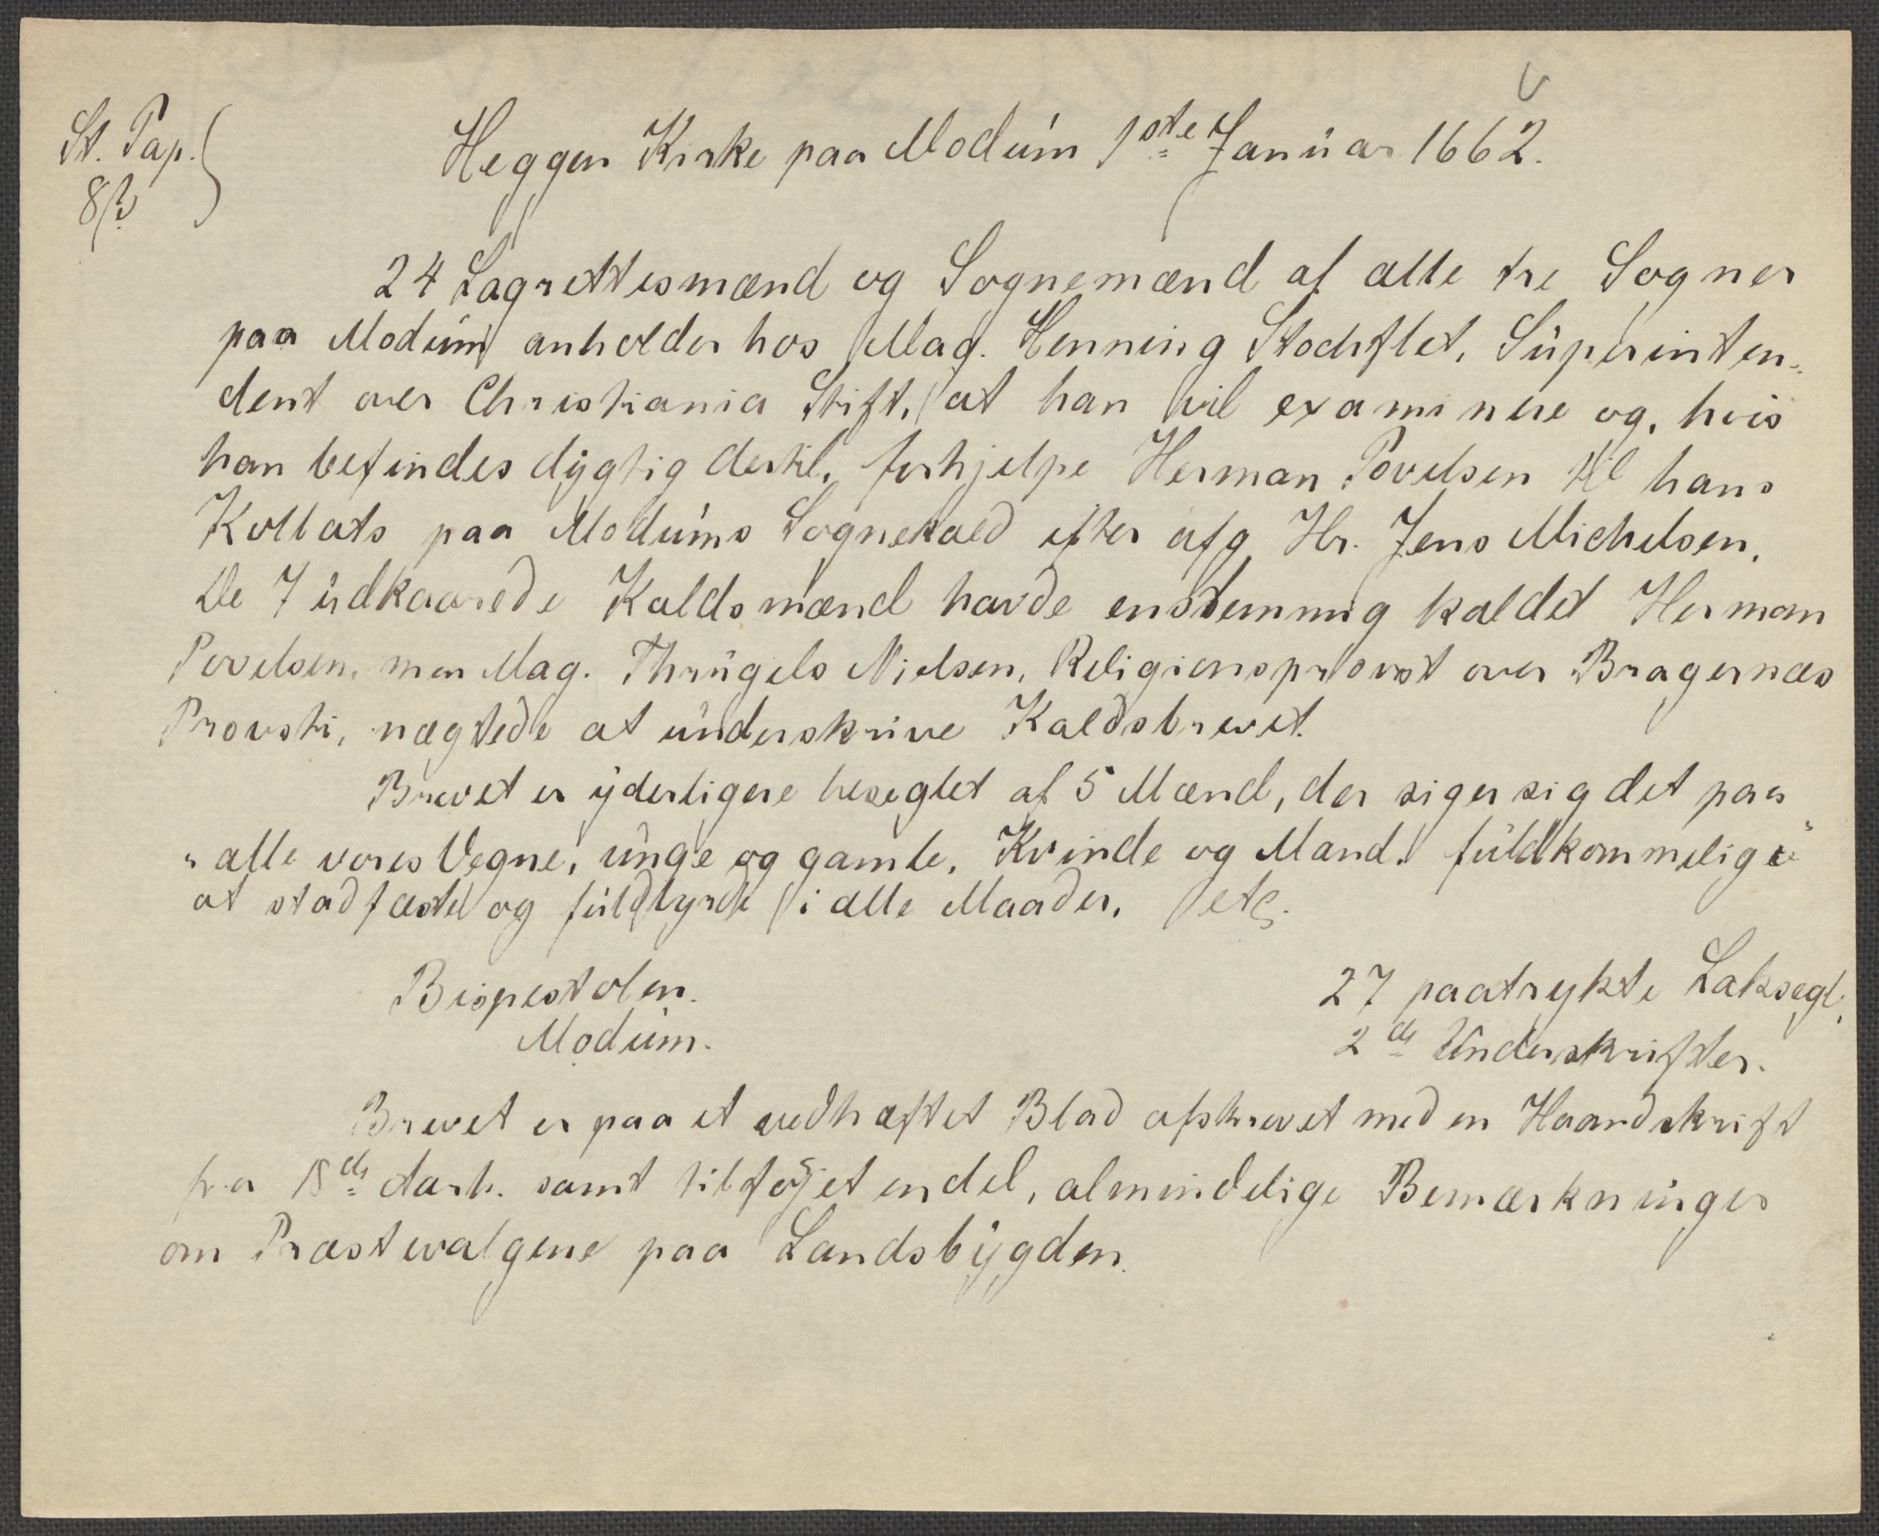 St. Pap.
8/3
Heggen Kirke paa Modum 1ste Januar 1662.
24 Lagrettesmænd og Sognemænd af alle tre Sogner
paa Modum anholder hos Mag. Henning Stockflet, Superinten-
dent over Christiania Stift, at han vil examinere og, hvis
han befindes dygtig dertil, forhjelpe Herman Povelsen til hans
Kollats paa Modums Sognekald efter afg. Hr. Jens Michelsen.
De 7 udkaarede Kaldsmænd havde enstemmig kaldet Herman
Povelsen, men Mag. Thrugels Nielsen, Religionsprovst over Bragernæs
Provsti, nægtede at underskrive Kaldsbrevet.
Brevet er yderligere beseglet af 5 Mænd, der siger sig det paa
"alle vores Vegne, unge og gamle, Kvinde og Mand, fuldkommelige"
at stadfæste og fuldbyrde i alle Maader, etc.
Bispestolen.
Modum.
27 paatrykte Laksegl,
2de Underskrifter.
Brevet er paa et vedhæftet Blad afskrevet med en Haandskrift
fra 18de Aarh. samt tilføjet endel, almindelige Bemærkninger
om Præstevalgene paa Landsbygden.